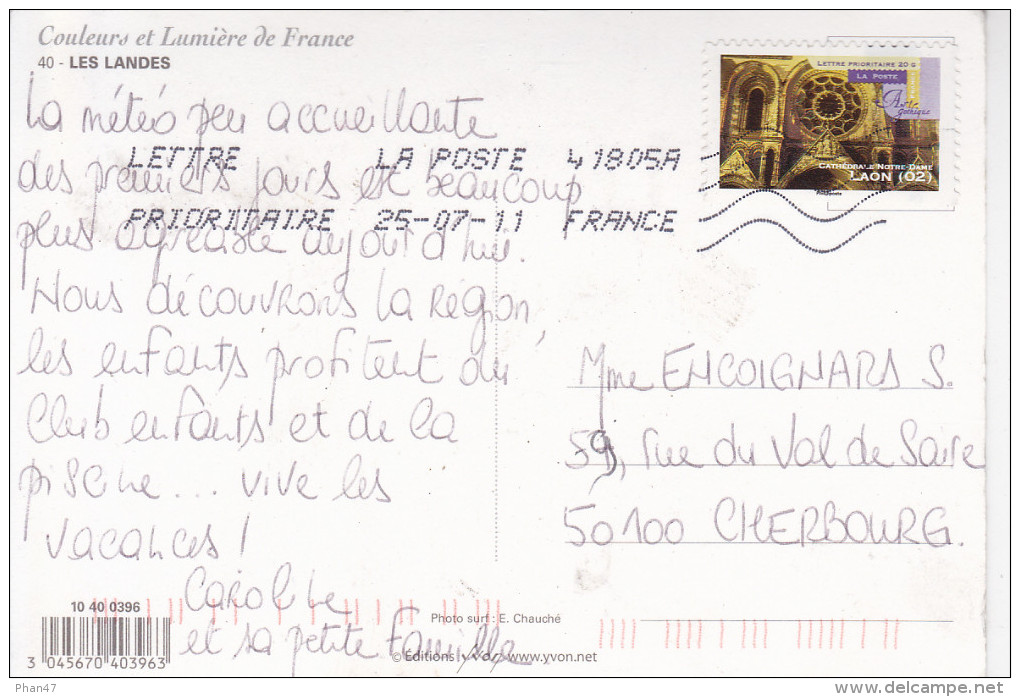 Couleurs et Lumière de France
40 - LES LANDES
La météo peu accueillante
des premiers jours est beaucoup
plus agréable aujourd'hui.
Nous découvrons la région,
les enfants profitent du
Club enfants et de la
piscine... vive les
vacances!
Caroline
et sa petite famille
LETTRE LA POSTE 41805A
PRIORITAIRE 25-07-11 FRANCE
LETTRE PRIORITAIRE 20 G
LA POSTE
FRANCE
Art
gothique
CATHÉDRALE NOTRE-DAME
LAON (02)
Mme ENCOIGNARS S.
59, rue du Val de Saire
50100 CHERBOURG.
10 40 0396
3 045670 403963
Photo surf : E. Chauché
© Éditions yvon www.yvon.net
Phan47
delcampe.net